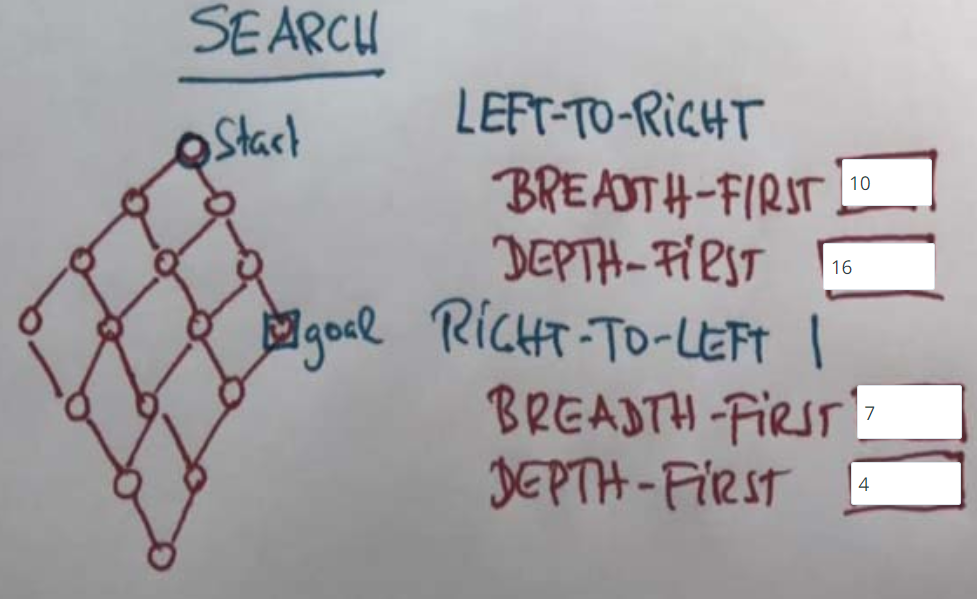 SEARCH
Start
LEFT-TO-RiGHT
BREADTH-FIRST 10
DEPTH-FiRST 16
goal
RiGHT-TO-LEFT |
BREADTH-FiRST 7
DEPTH-FiRST 4